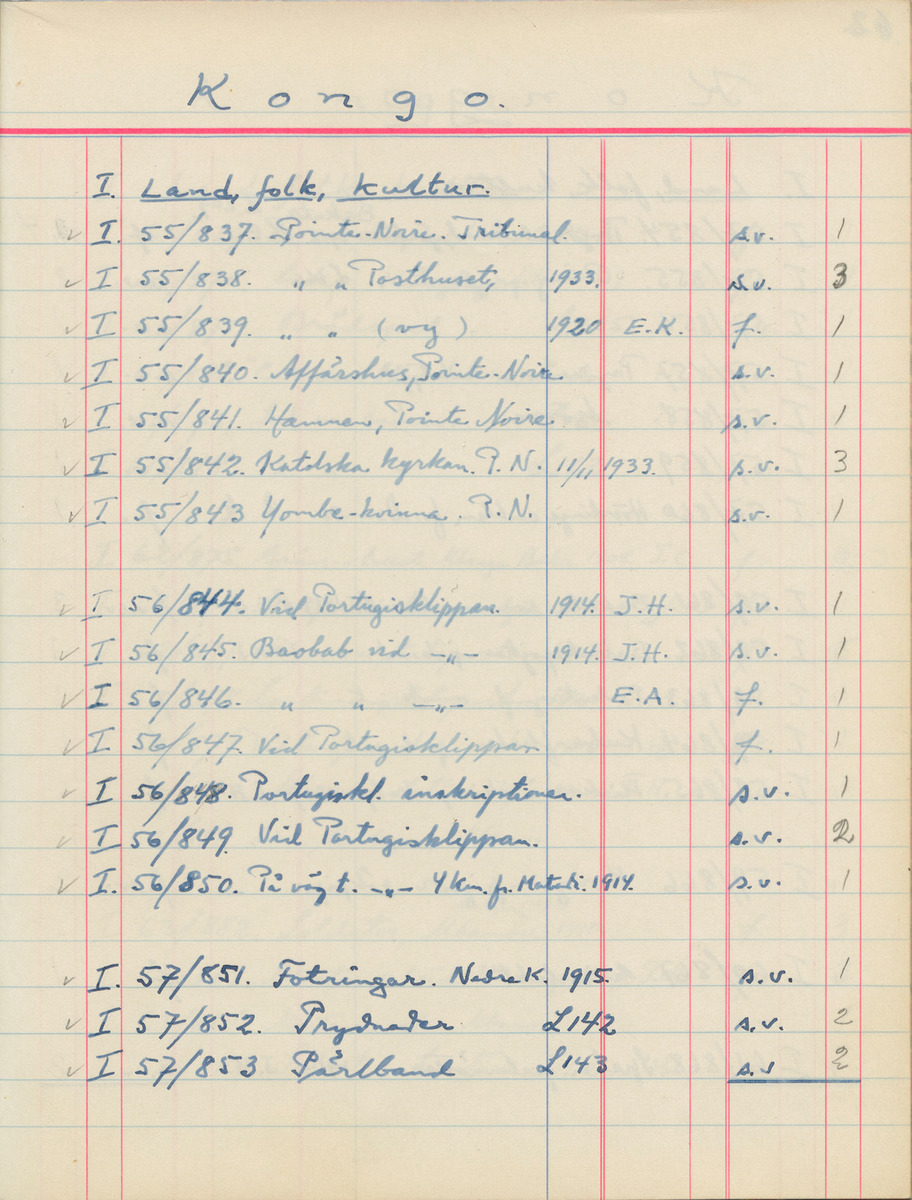 Kongo.
I. Land, folk, kultur.
✓ I. 55/837. Pointe-Noire. Tribunal. s.v. 1
✓ I 55/838. " " Posthuset, 1933. s.v. 3
✓ I 55/839. " " (vy) 1920 E.K. f. 1
✓ I 55/840. Affärshus, Pointe-Noire s.v. 1
✓ I 55/841. Hamnen, Pointe Noire s.v. 1
✓ I 55/842. Katolska kyrkan. P.N. 11/11 1933. s.v. 3
✓ I 55/843 Yombe-kvinna. P.N. s.v. 1
✓ I 56/844. Vid Portugisklippan. 1914. J.H. s.v. 1
✓ I 56/845. Baobab vid -"- 1914. J.H. s.v. 1
✓ I 56/846. " " -"- E.A. f. 1
✓ I 56/847. Vid Portugisklippan f. 1
✓ I 56/848. Portugiskl. inskriptioner. s.v. 1
✓ I 56/849 Vid Portugisklippan. s.v. 2
✓ I. 56/850. På väg t. -"- 4 km. fr. Matadi. 1914. s.v. 1
✓ I. 57/851. Fotringar. Nedre K. 1915. s.v. 1
✓ I 57/852. Prydnader L142 s.v. 2
✓ I 57/853 Pärlband L143 s.v 2